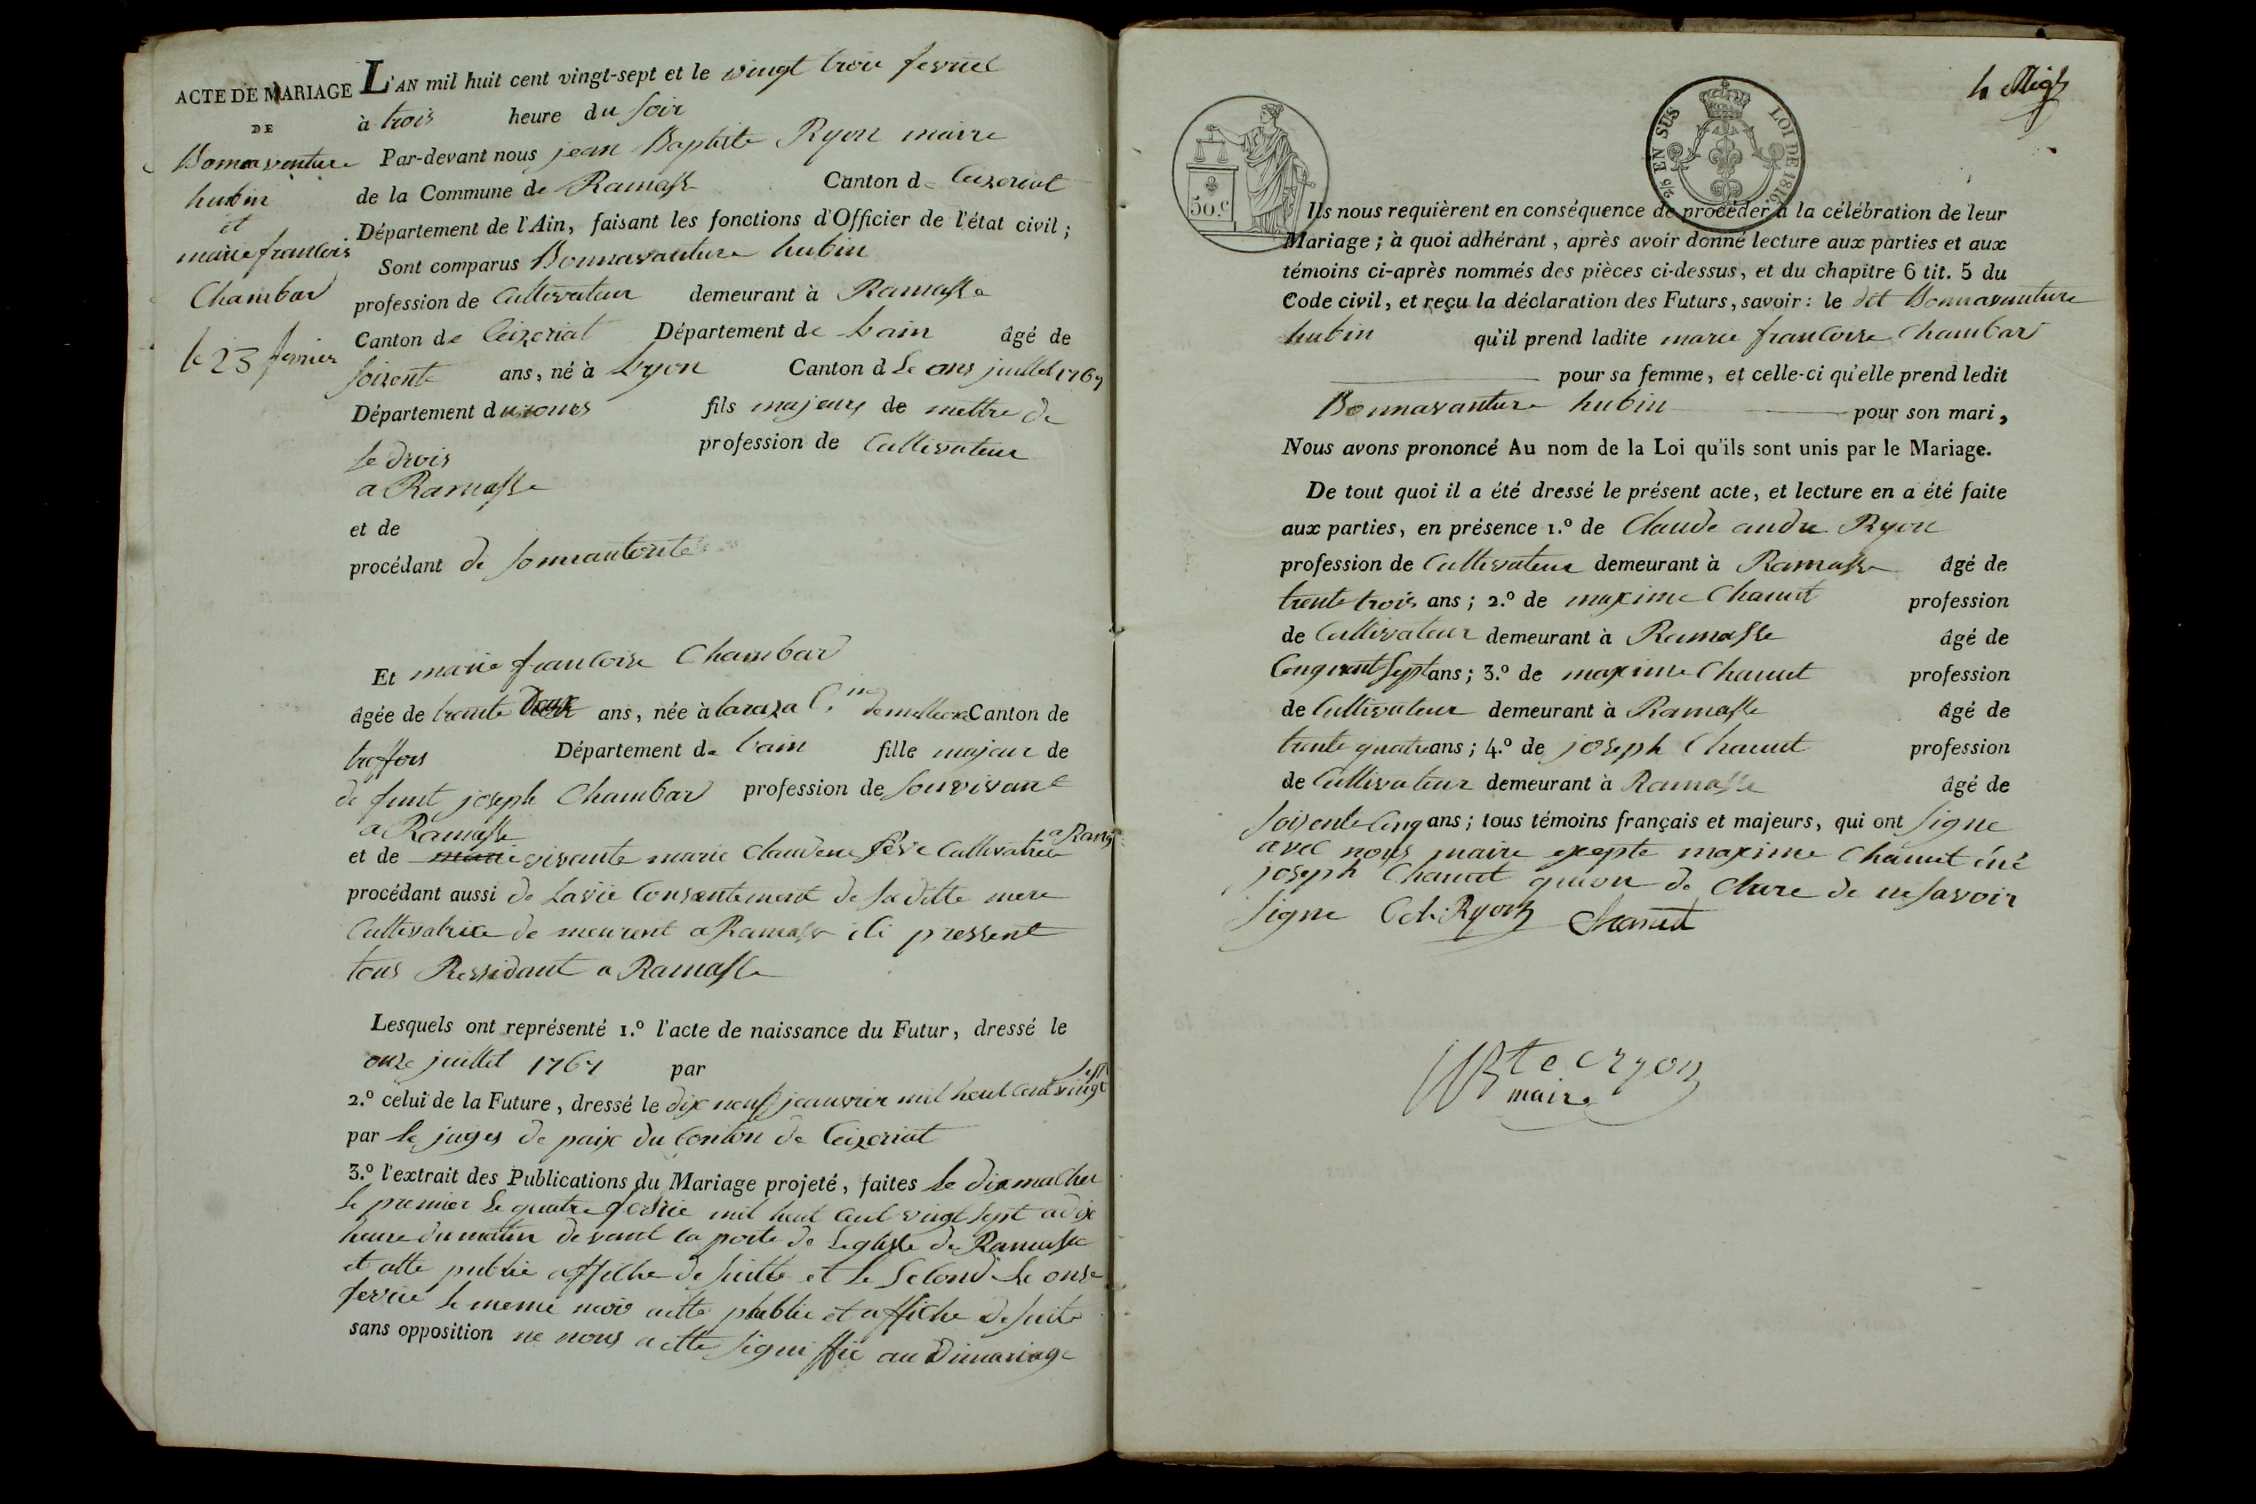 ACTE DE MARIAGE
DE
Bonnaventure
hubin
et
marie francois
Chambar
le 23 fevrier
L'AN mil huit cent vingt-sept et le vingt trois fevriel
à trois heure du soir
Par-devant nous jean Baptiste Ryon maire
de la Commune de Ramasse Canton de Ceizeriat
Département de l'Ain, faisant les fonctions d'Officier de l'état civil ;
Sont comparus Bonnavanture hubin
profession de Cultivateur demeurant à Ramasse
Canton de Ceizeriat Département de lain âgé de
soixente ans, né à Lyon Canton d Le onz juillet 1767
Département du fils majeur de mettre de
le drois profession de Cultivateur
a Ramasse
et de
procédant de
Et marie francoise Chambar
âgée de trente ans, née à Canton de
treffors Département de lain fille majeur de
de funt joseph Chambar profession de sonvivant
a Ramasse
et de vivante marie Claudine Cultivatrice a Ramas
procédant aussi de Lavie Consentement de sa ditte mere
Cultivatrice de meurent a Ramasse ici pressent
tous Ressidant a Ramasse
Lesquels ont représenté 1.º l'acte de naissance du Futur, dressé le
onze juillet 1767 par
2.º celui de la Future, dressé le dix neuf janvrier mil heut cent vingt sept
par le juges de paix du Conton de Ceizeriat
3.º l'extrait des Publications du Mariage projeté, faites le dix mal
le premier le quatre fevrie mil heut cent vingt sept a dix
heure du matin devant la porte de Leglisse de Ramasse
et atte publie affiche de suitte et le second le onze
fervie le meme mois aette publie et affiche de suite
sans opposition ne nous a ette signiffie au Dimariage
50.C
2/5 EN SUS LOI DE 1816.
Ils nous requièrent en conséquence de procéder à la célébration de leur
Mariage ; à quoi adhérant, après avoir donné lecture aux parties et aux
témoins ci-après nommés des pièces ci-dessus, et du chapitre 6 tit. 5 du
Code civil, et reçu la déclaration des Futurs, savoir : le dit Bonnavanture
hubin qu'il prend ladite marie francoise Chambar
pour sa femme, et celle-ci qu'elle prend ledit
Bonnavanture hubin pour son mari,
Nous avons prononcé Au nom de la Loi qu'ils sont unis par le Mariage.
De tout quoi il a été dressé le présent acte, et lecture en a été faite
aux parties, en présence 1.º de Claude andre Ryon
profession de Cultivateur demeurant à Ramasse âgé de
trente trois ans ; 2.º de maxime Chanut profession
de Cultivateur demeurant à Ramasse âgé de
Cinquant sept ans ; 3.º de maxime Chanut profession
de Cultivateur demeurant à Ramasse âgé de
trente quatre ans ; 4.º de joseph Chanut profession
de Cultivateur demeurant à Ramasse âgé de
soixente Cinq ans ; tous témoins français et majeurs, qui ont signe
avec nous maire exepte maxime Chanut éné
joseph Chanut quion de Clare de ne savoir
signe Ryon Chanut
JBte Ryon
maire